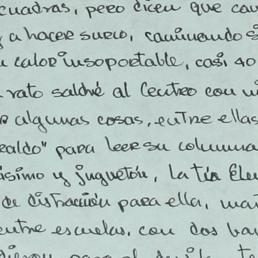 cuadras, pero dicen que
a hacer suero, caminando
calor insoportable, casi 40
rato saldré al Centro con
algunas cosas, entre ellas
para leer su columna
y juguetón, la tía
de distracción para ella,
entre escuelas, con dos